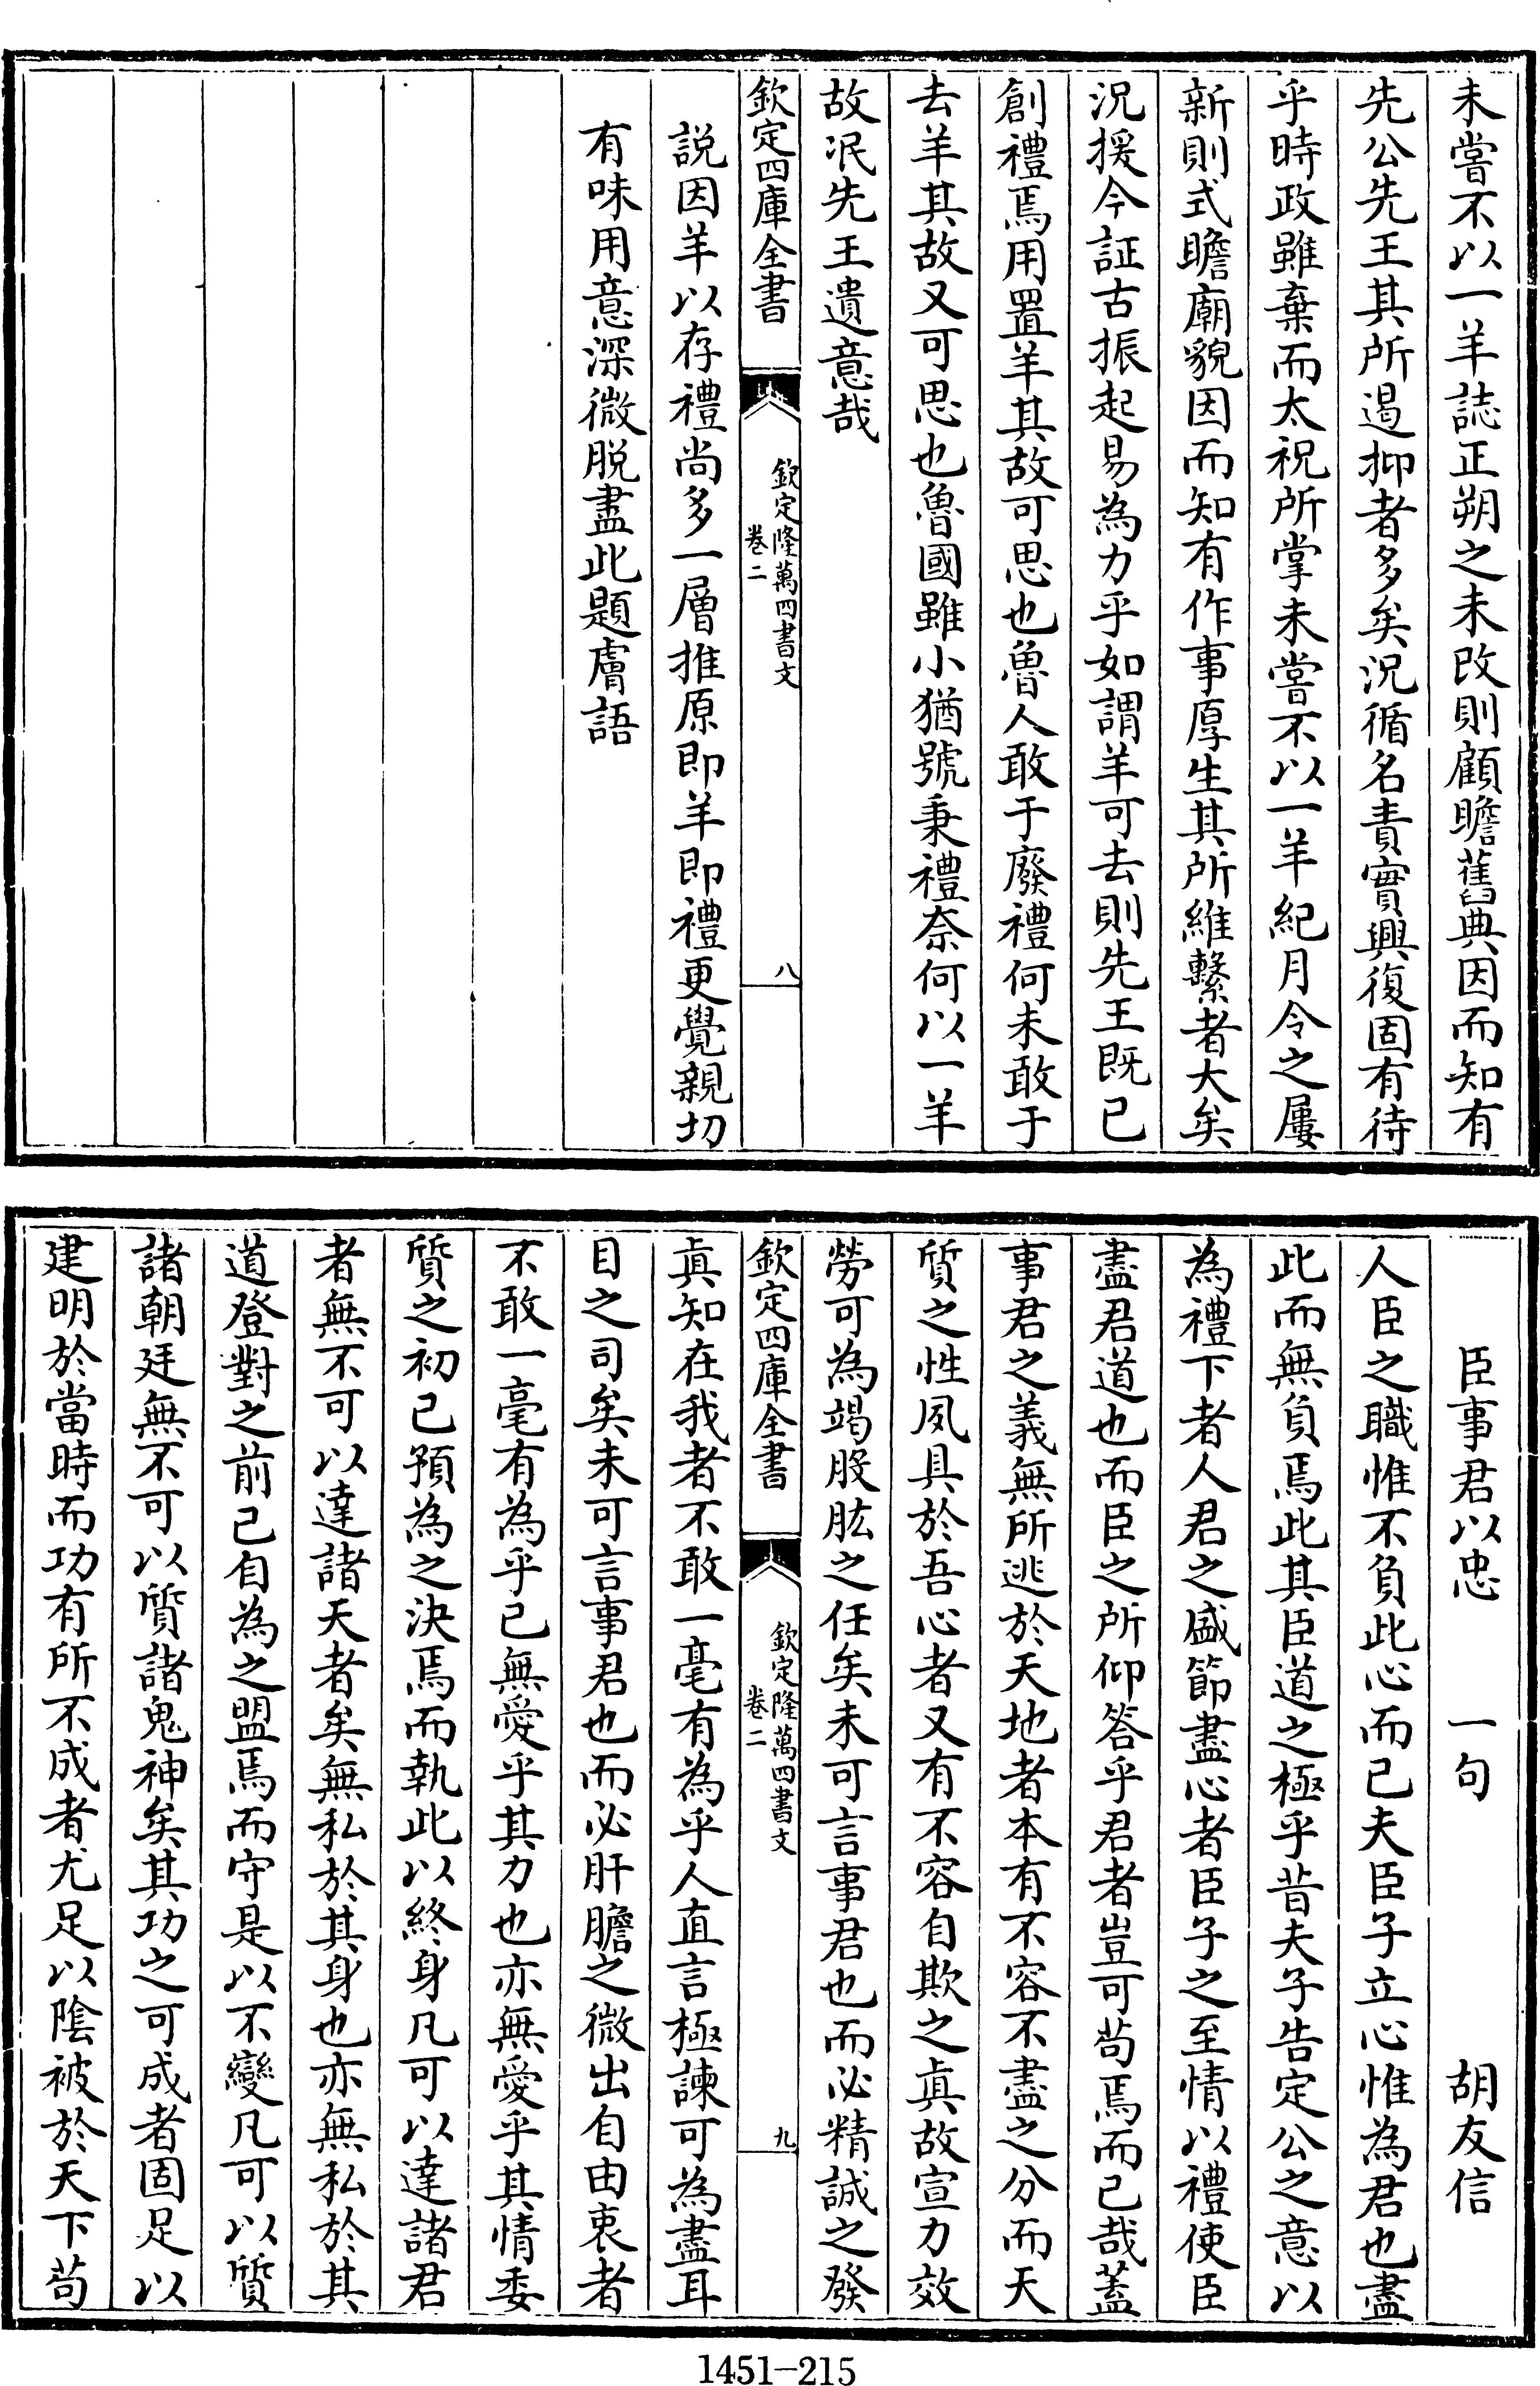 未嘗不以一羊誌正朔之未改則顧瞻舊典因而知有
先公先王其所遏抑者多矣況循名責實興復固有待
乎時政雖棄而太祝所掌未嘗不以一羊紀月令之屢
新則式瞻廟貌因而知有作事厚生其所維繫者大矣
況援今証古振起易為力乎如謂羊可去則先王既已
創禮焉用置羊其故可思也魯人敢于廢禮何未敢于
去羊其故又可思也魯國雖小猶號秉禮奈何以一羊
故泯先王遺意哉
欽定四庫全書
欽定隆萬四書文
卷二
八
説因羊以存禮尚多一層推原即羊即禮更覺親切
有味用意深微脱盡此題膚語
臣事君以忠 一句 胡友信
人臣之職惟不負此心而已夫臣子立心惟為君也盡
此而無負焉此其臣道之極乎昔夫子告定公之意以
為禮下者人君之盛節盡心者臣子之至情以禮使臣
盡君道也而臣之所仰答乎君者豈可苟焉而已哉蓋
事君之義無所逃於天地者本有不容不盡之分而天
質之性夙具於吾心者又有不容自欺之真故宣力效
勞可為竭股肱之任矣未可言事君也而必精誠之發
欽定四庫全書
欽定隆萬四書文
卷二
九
真知在我者不敢一毫有為乎人直言極諫可為盡耳
目之司矣未可言事君也而必肝膽之微出自由衷者
不敢一毫有為乎已無愛乎其力也亦無愛乎其情委
質之初已預為之決焉而執此以終身凡可以達諸君
者無不可以達諸天者矣無私於其身也亦無私於其
道登對之前已自為之盟焉而守是以不變凡可以質
諸朝廷無不可以質諸鬼神矣其功之可成者固足以
建明於當時而功有所不成者尤足以陰被於天下苟
1451-215